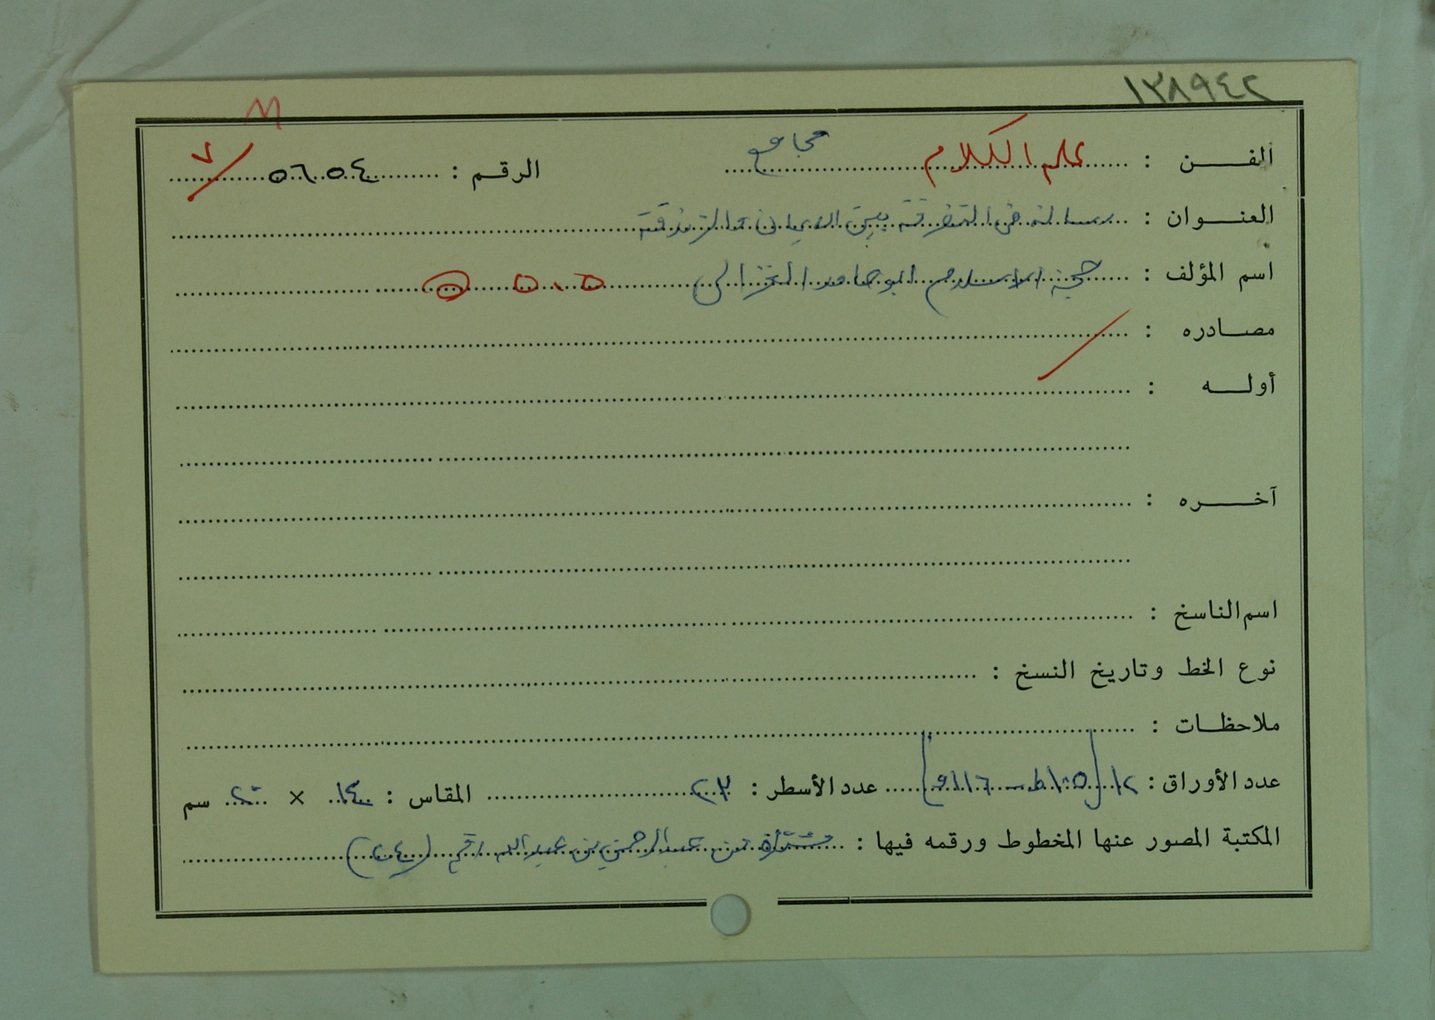 ١٣٨٩٤٢
الفن : علم الكلام مجاميع الرقم : ٥٦٥٤ / ٧
العنوان : رسالة في التفرقة بين الايمان والزندقة
اسم المؤلف : حجة الاسلام ابو حامد الغزالي ٥٠٥ ه
مصادره :
أوله :
آخره :
اسم الناسخ :
نوع الخط وتاريخ النسخ :
ملاحظات :
عدد الأوراق : ١٢ [١٠٥ظ - ١١٦و] عدد الأسطر : ٢٣ المقاس : ١٤ × ٢٠ سم
المكتبة المصور عنها المخطوط ورقمه فيها : مشتراة من عبدالرحمن بن عبدالله رقم (٢٤)